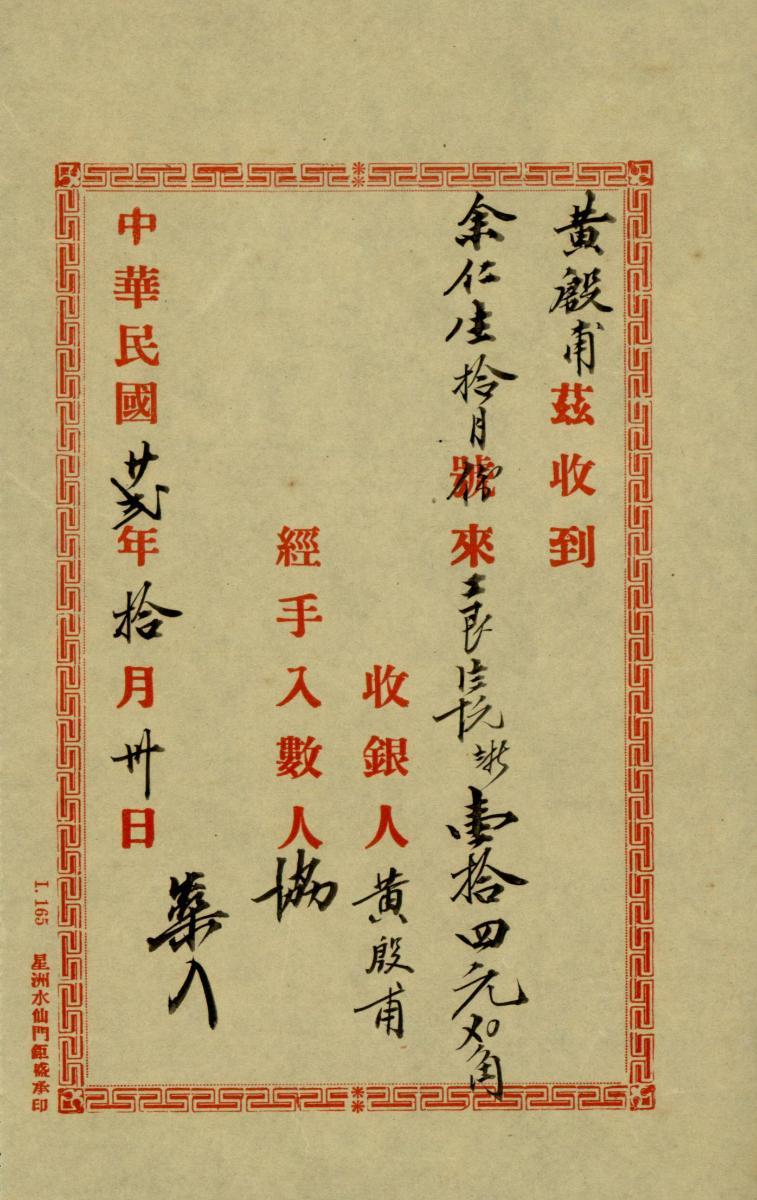 黃殷甫茲收到
余仁生拾月份號來工艮壹拾四元角
收銀人黃殷甫
經手入數人協
藥入
中華民國廿弍年拾月卅日
L. 165 星洲水仙門鉅盛承印